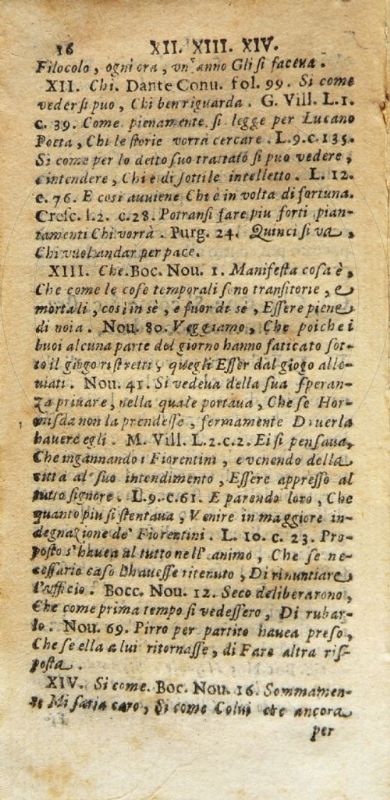 16 XII. XIII. XIV.
Filocolo, ogni ora, un'anno Gli si faceva.
XII. Chi. Dante Conu. fol. 99. Si come
veder si puo, Chi ben riguarda. G. Vill. L.1.
c. 39. Come pienamente si legge per Lucano
Poeta, Chi le storie vorrà cercare. L.9.c.135.
Si come per lo detto suo trattato si puo vedere,
e intendere, Chi è di sottile intelletto. L. 12.
c. 76. E così auuiene Chi è in volta di fortuna.
Cresc. l.2. c.28. Potransi fare piu forti pian-
tamenti Chi vorrà. Purg. 24. Quinci si va,
Chi vuol andar per pace.
XIII. Che. Boc. Nou. 1. Manifesta cosa è,
Che come le cose temporali sono transitorie, e
mortali, così in sè, e fuor di sè, Essere piene
di noia. Nou. 80. Veggiamo, Che poiche i
buoi alcuna parte del giorno hanno faticato sot-
to il giogo ristretti, quegli Esser dal giogo alle-
uiati. Nou. 41. Si vedeua della sua speran-
za priuare, nella quale portaua, Che se Hor-
misda non la prendesse, fermamente Douerla
hauere egli. M. Vill. L.2.c.2. Ei si pensaua,
Che ingannando i Fiorentini, e venendo della
città al suo intendimento, Essere appresso al
tutto signore. L.9.c.61. E parendo loro, Che
quanto piu si stentaua, Venire in maggiore in-
degnazione de' Fiorentini. L. 10. c. 23. Pro-
posto s'hauea al tutto nell'animo, Che se ne-
cessario caso Lhauesse ritenuto, Di rinuntiare
l'ufficio. Bocc. Nou. 12. Seco deliberarono,
Che come prima tempo si vedessero, Di rubar-
lo. Nou. 69. Pirro per partito hauea preso,
Che se ella a lui ritornasse, di Fare altra ris-
posta.
XIV. Si come. Boc. Nou. 16. Sommamen-
te Mi saria caro, Si come Colui che ancora
per